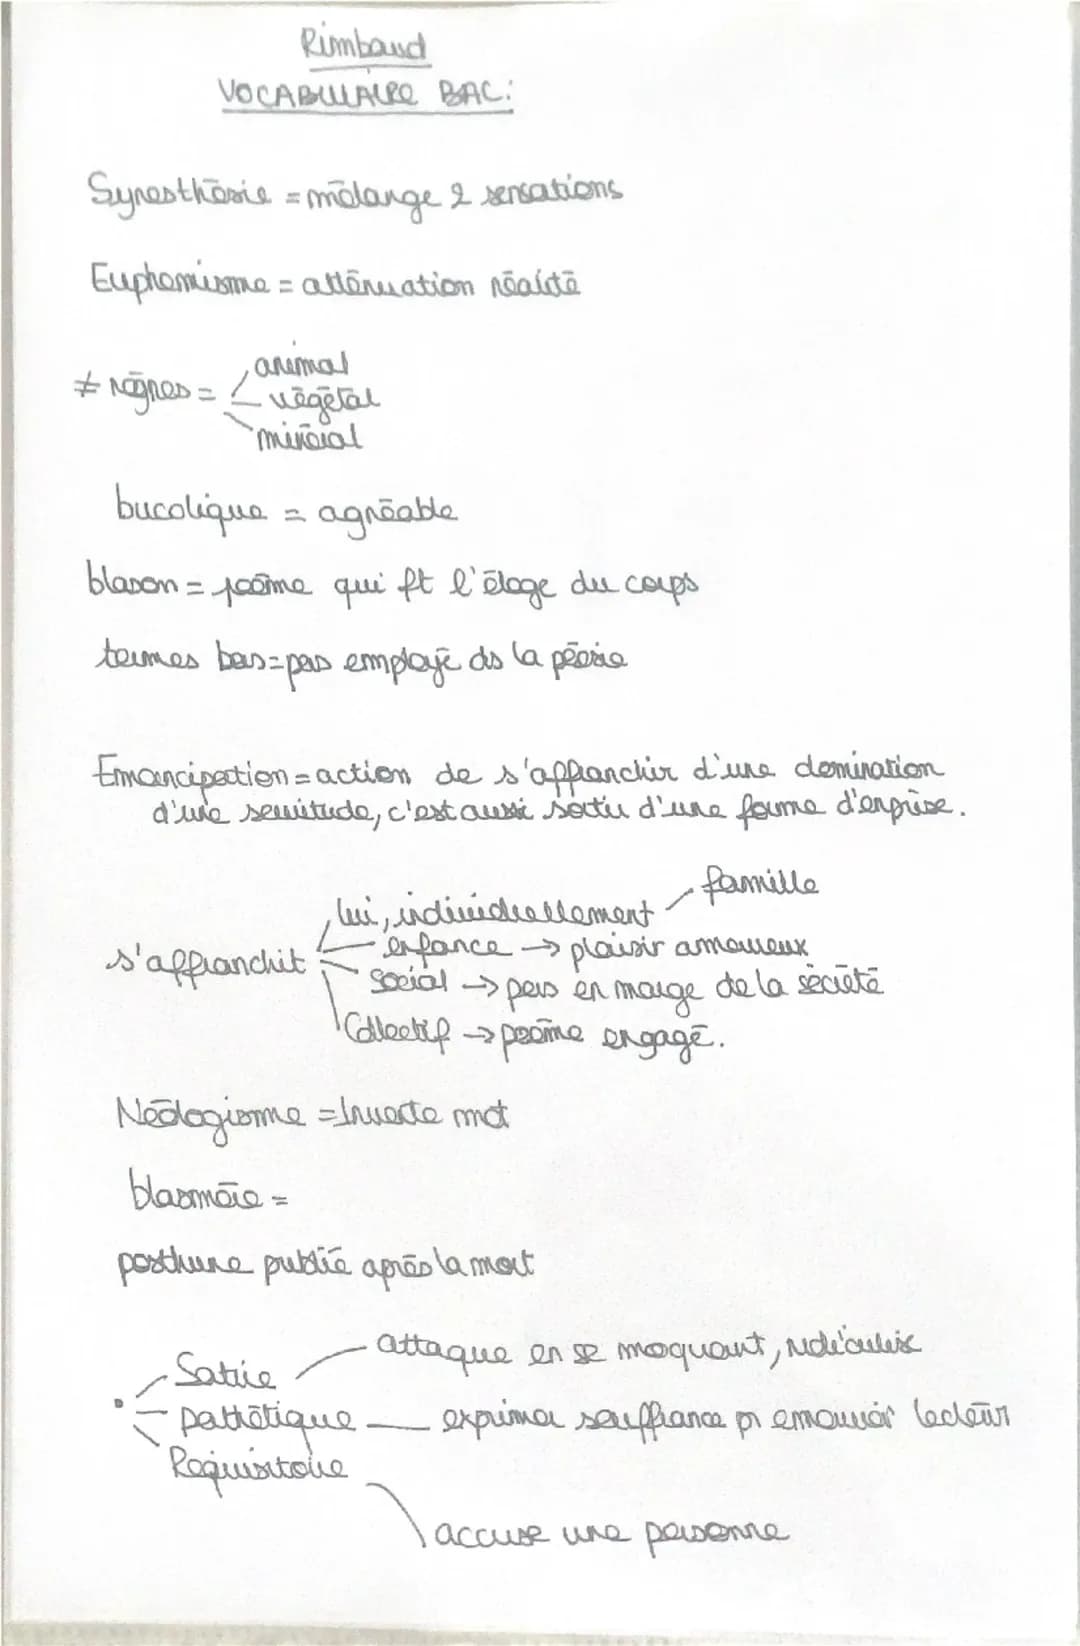 Rimbaud
VOCABULAIRE BAC:
Synesthésie = mélange 2 sensations
Euphemisme = atténuation réalité
≠ règnes = animal
végétal
minéral
bucolique = agréable
blason = poème qui ft l'éloge du corps
termes bas = pas employé ds la poésie
Emancipation = action de s'affranchir d'une domination
d'une servitude, c'est aussi sortir d'une forme d'emprise.
s'affranchit
lui, individuellement - famille
enfance → plaisir amoureux
Social → pers en marge de la société
Collectif → poème engagé.
Néologisme = Invente mot
blasmée =
posthune publié après la mort
Satire - attaque en se moquant, ridiculise
pathétique - exprimer souffrance pr emouvoir lecteur
Requisitoire
accuse une personne